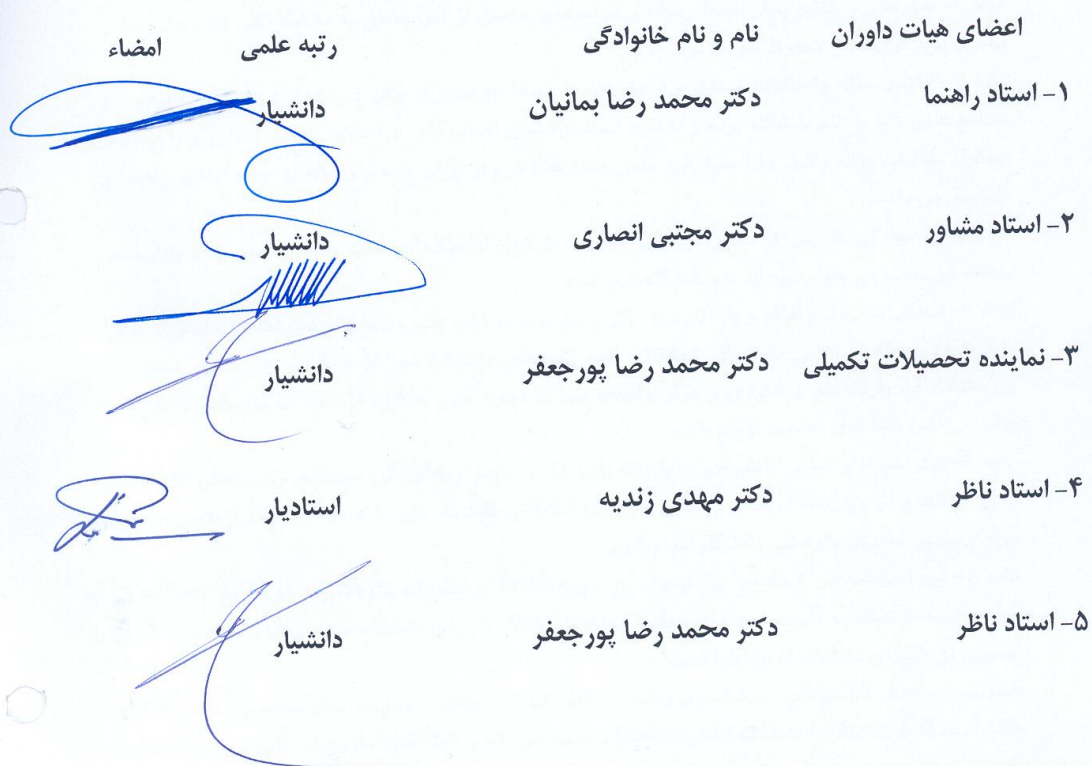 اعضای هیات داوران نام و نام خانوادگی رتبه علمی امضاء
۱- استاد راهنما دکتر محمد رضا بمانیان دانشیار
۲- استاد مشاور دکتر مجتبی انصاری دانشیار
۳- نماینده تحصیلات تکمیلی دکتر محمد رضا پورجعفر دانشیار
۴- استاد ناظر دکتر مهدی زندیه استادیار
۵- استاد ناظر دکتر محمد رضا پورجعفر دانشیار